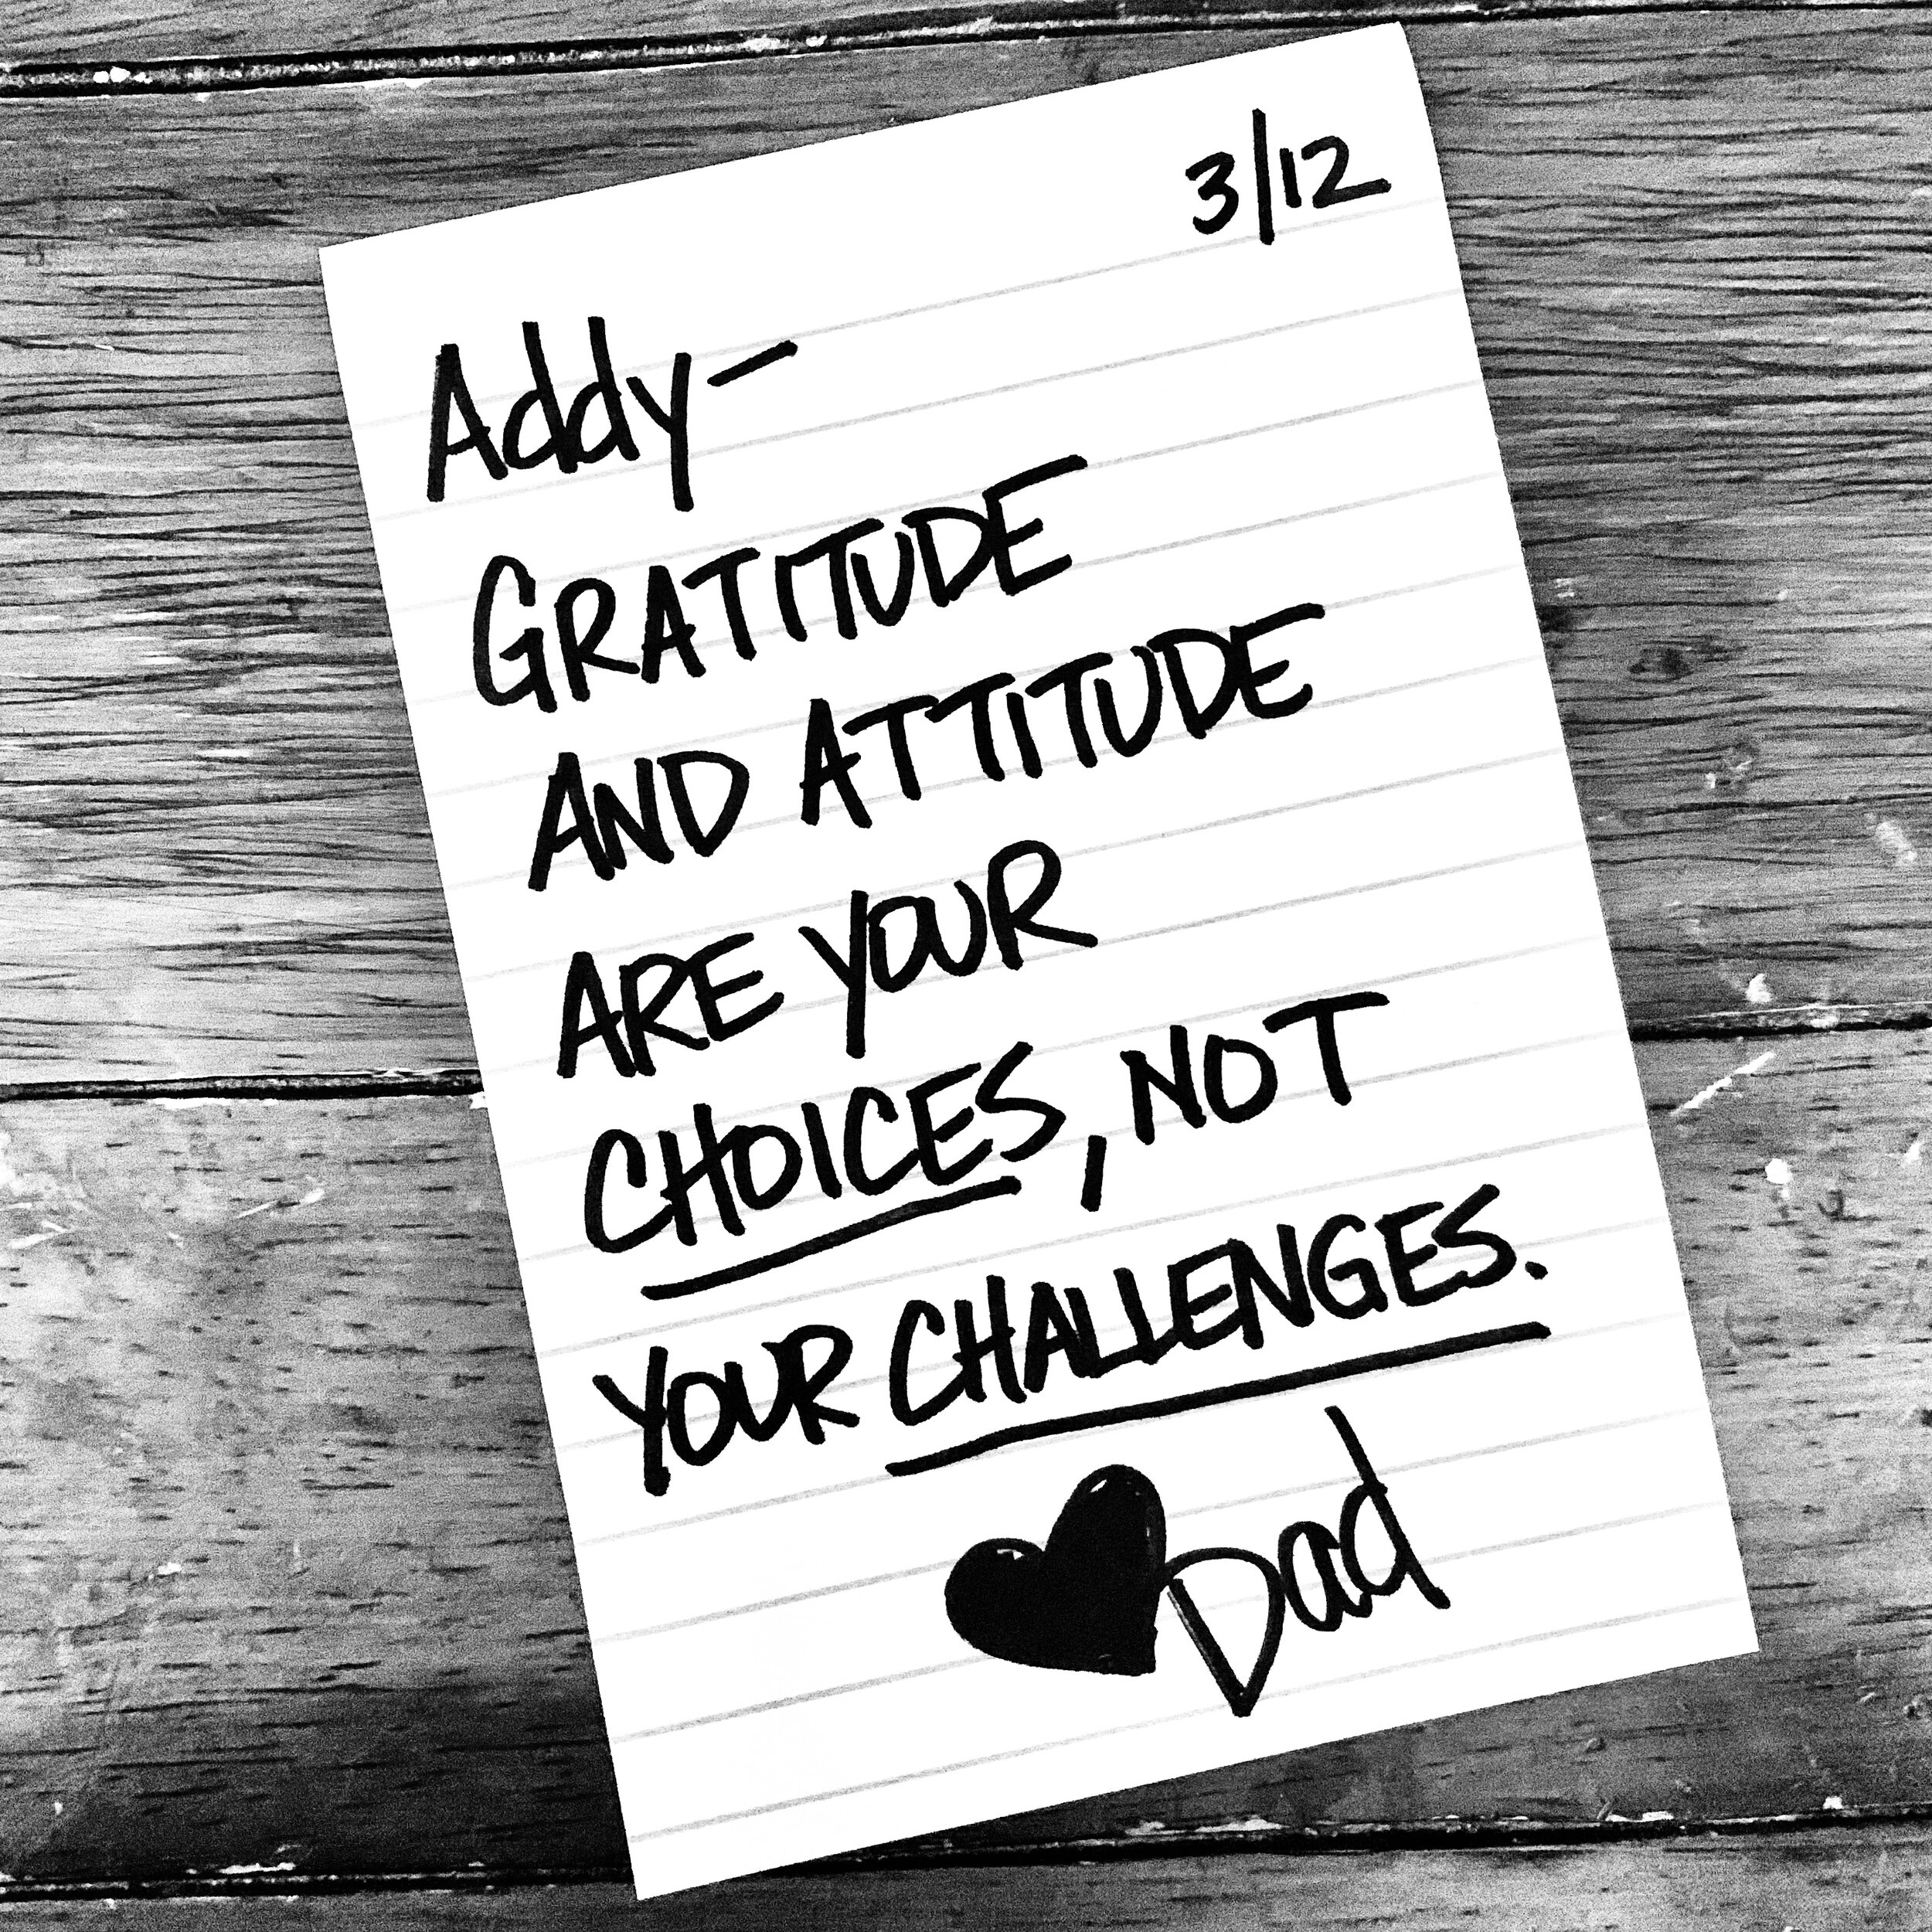 3/12
Addy—
GRATITUDE
AND ATTITUDE
ARE YOUR
CHOICES, NOT
YOUR CHALLENGES.
Dad